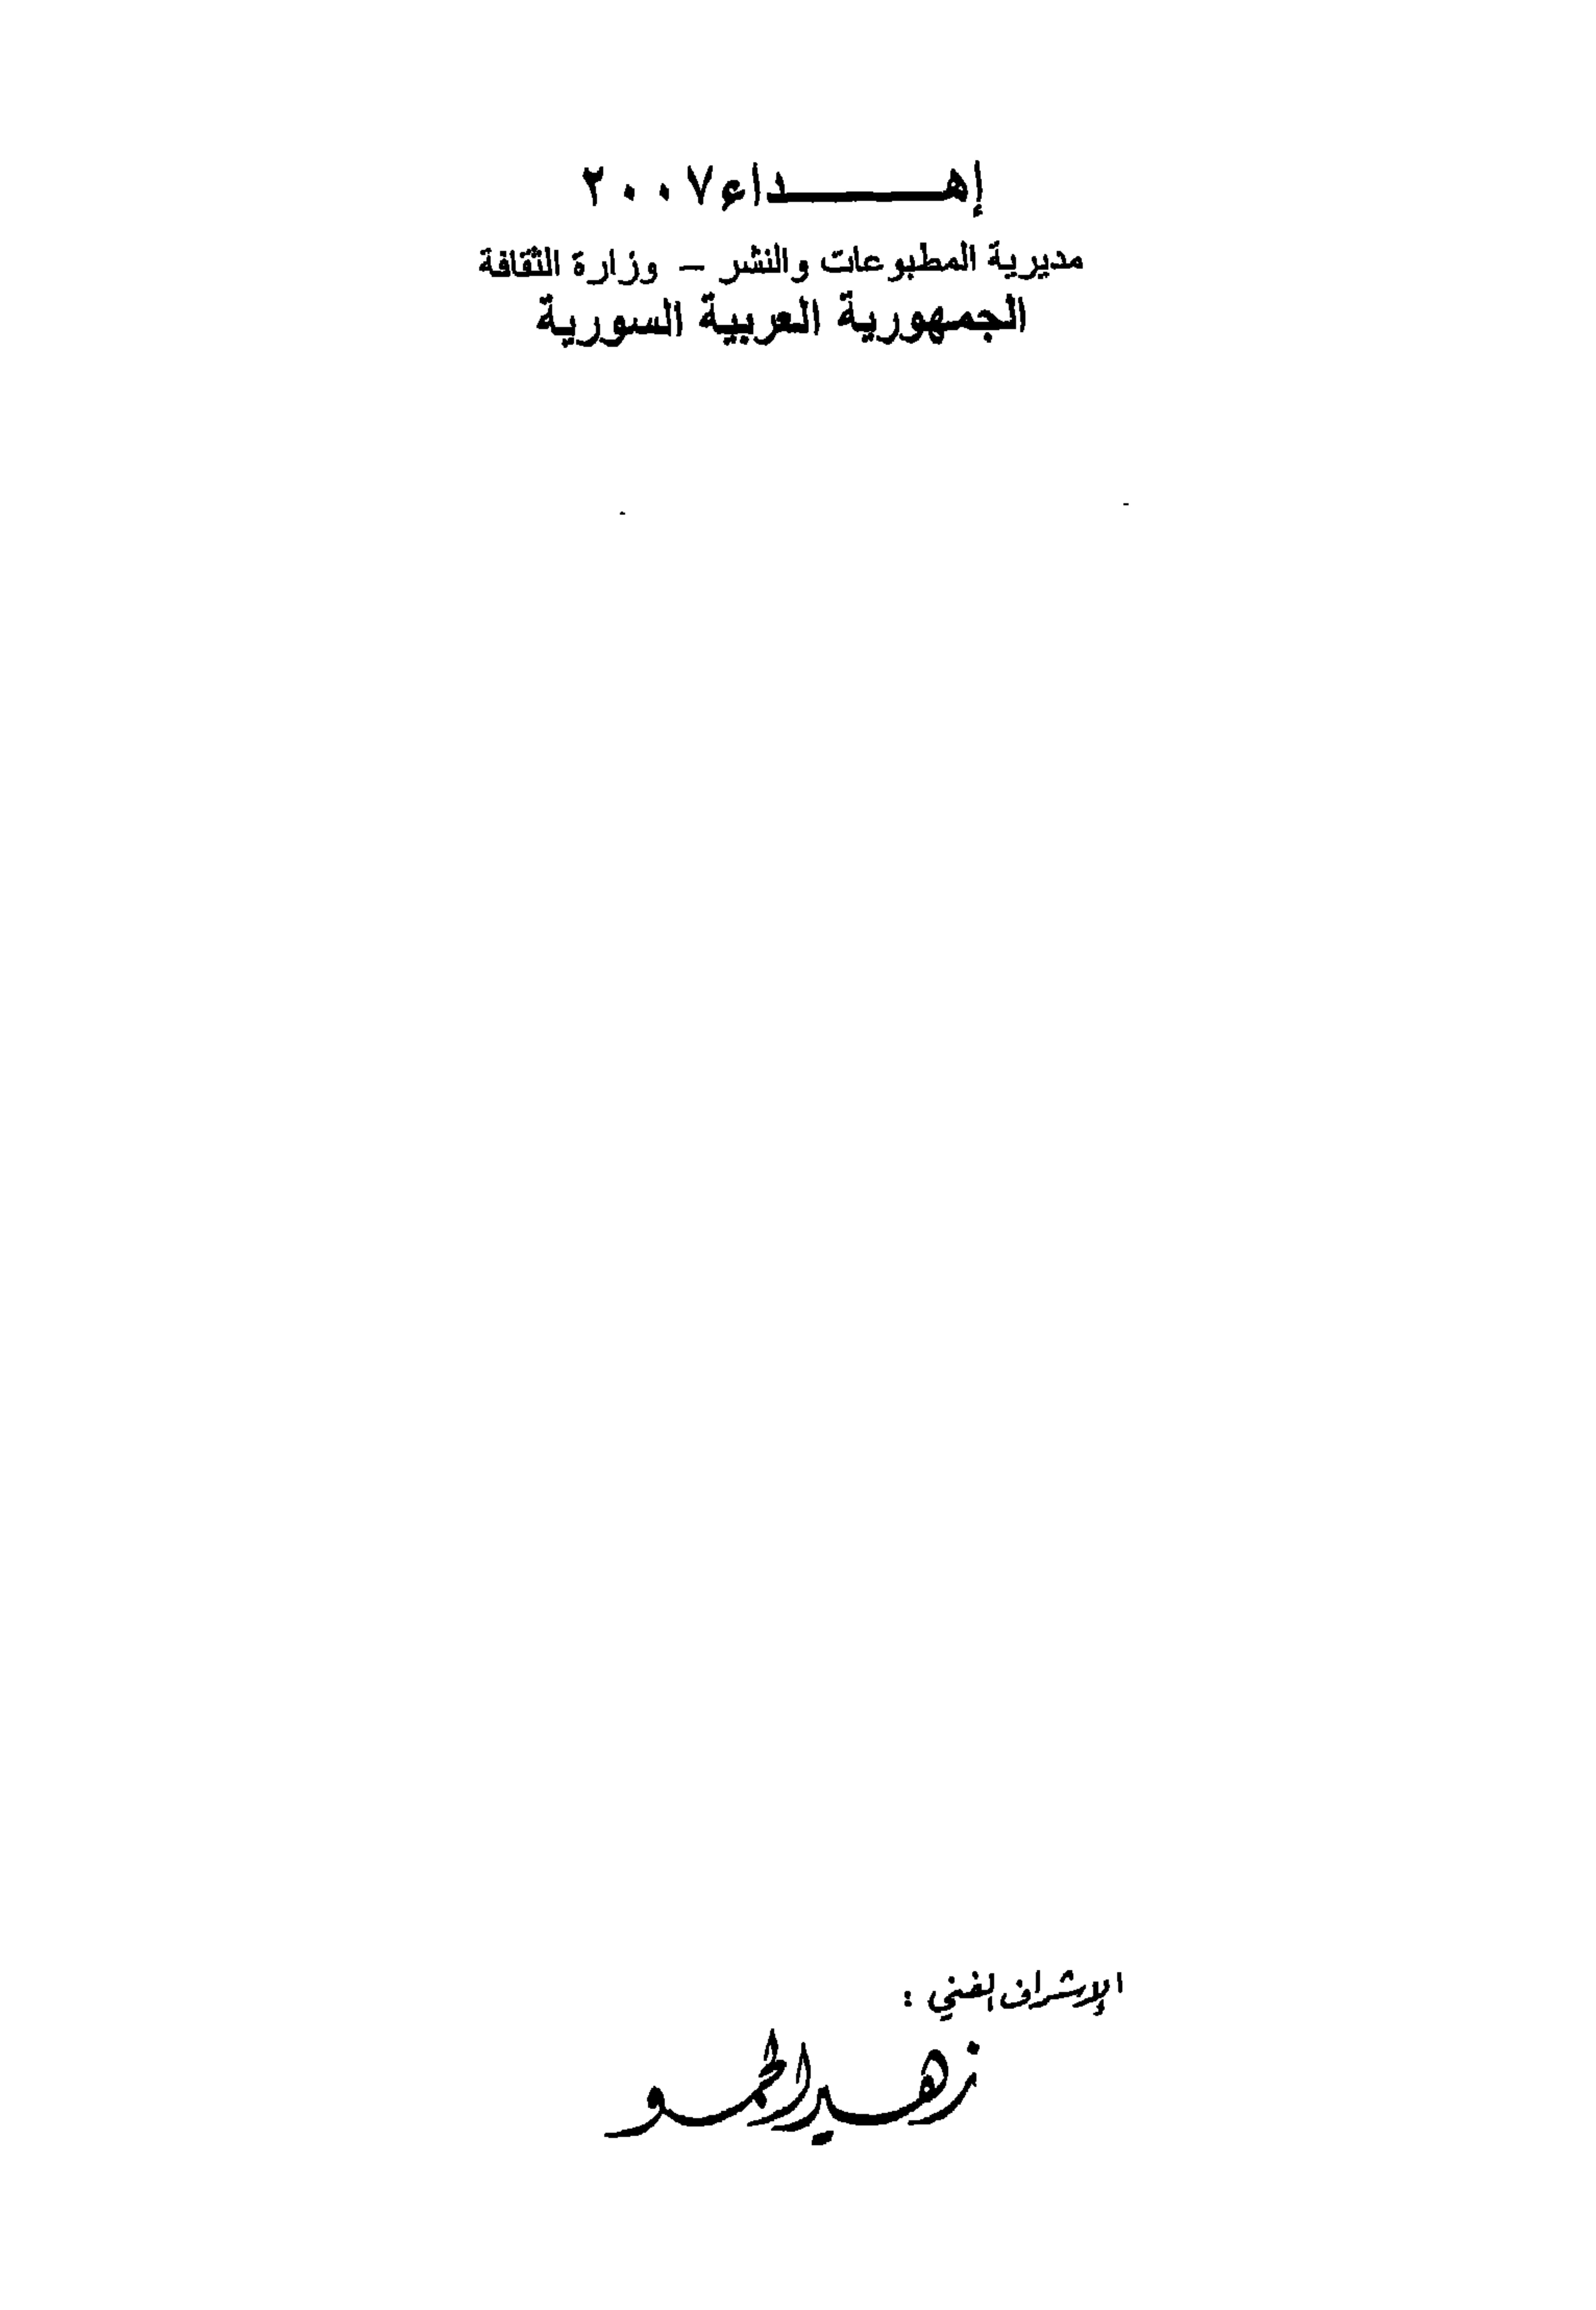 إهـــــــداء ٢٠٠٧
مديرية المطبوعات والنشر – وزارة الثقافة
الجمهورية العربية السورية
الإشراف الفني :
زهير الحمو